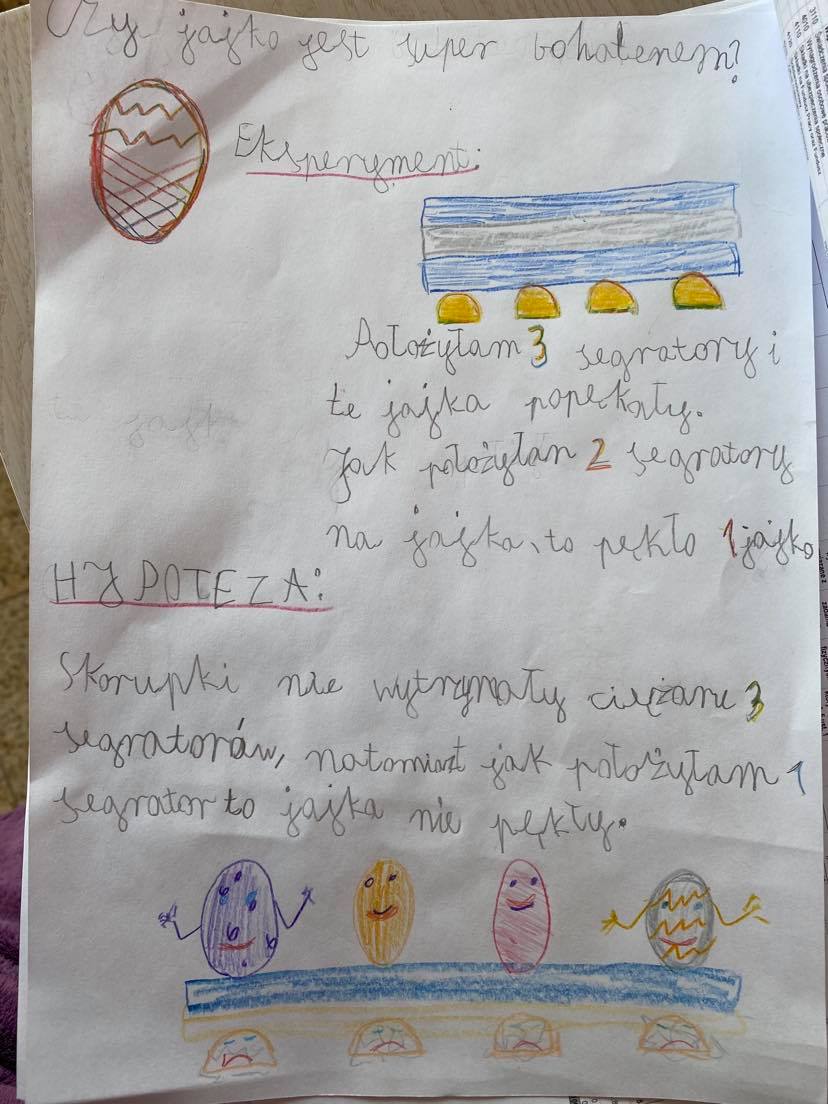 Czy jajko jest super bohaterem?
Eksperyment:
Położyłam 3 segratory i
te jajka popękały.
Jak położyłam 2 segratory
na jajka, to pękło 1 jajko
HYPOTEZA:
Skorupki nie wytrzymały ciężaru 3
segratorów, natomiast jak położyłam 1
segrator to jajka nie pękły.